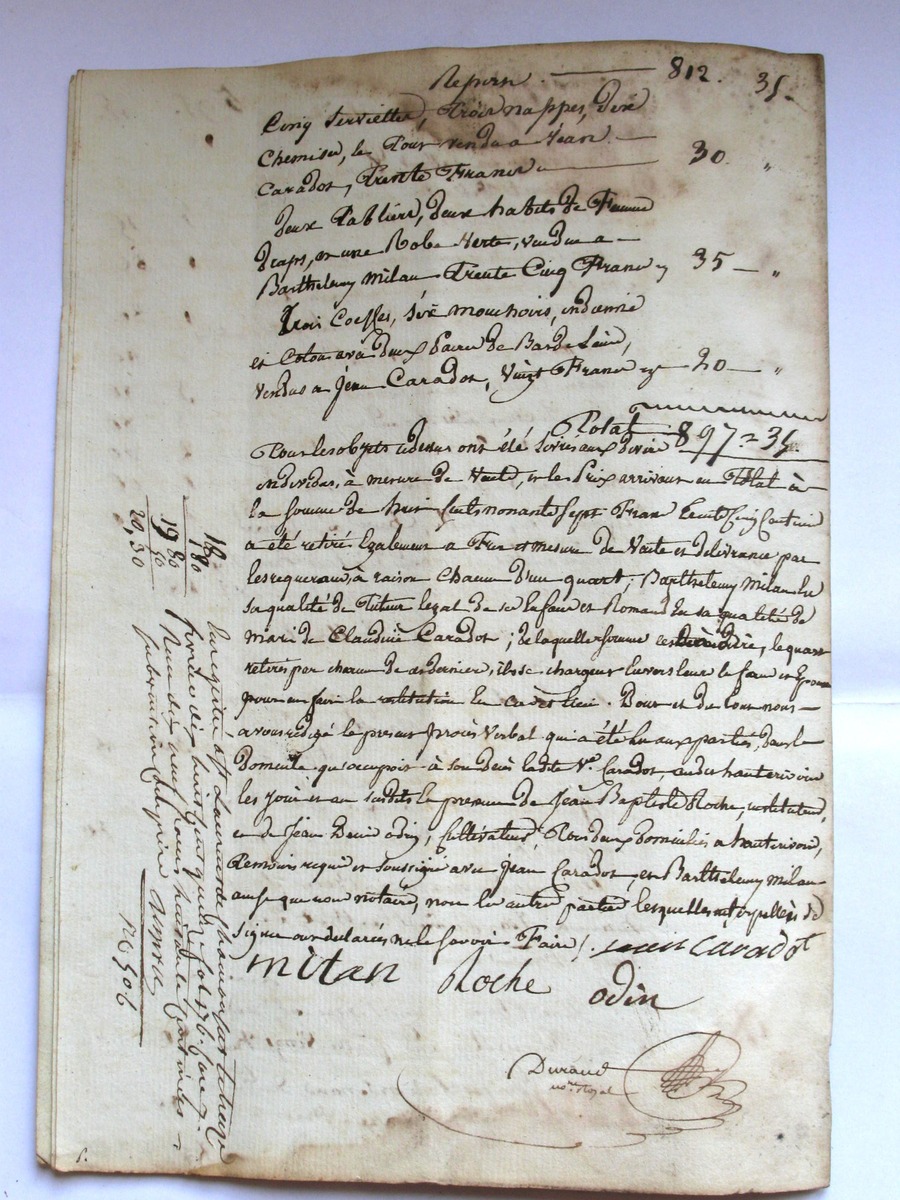 Report 812. 35
Cinq Serviettes, Trois nappes, dix
Chemises, le Tout vendu a Jean
Caradot, Trente Francs 30. "
Deux Tabliers, deux habits de Femme
draps, et une Robe Verte, vendus a
Barthelemy Milan Trente Cinq Francs 35 "
Trois Coeffes, Six mouchoirs, indienne
et Coton avec deux Paires de Bas de Laine,
vendus a Jean Caradot, Vingt Francs 20 "
Total 897 = 35
Tous les objets cidessus ont été livrés aux divers
individus, à mesure de Vente, et le Prix arrivant en Total à
la somme de huit Cents nonante Sept Francs Trente Cinq Centimes
a été retiré Egalement a Fur et mesure de Vente et délivrance par
les requerants, à raison Chacun d'un quart; Barthelemy Milan en
sa qualité de Tuteur legal de ses Enfans et Romand En sa qualité de
mari de Claudine Caradot; de laquelle somme le quart
retiré par chacun de ces derniers, ils se chargent Envers leurs Enfans et Epouse
pour en faire la restitution En cas et lieu. Dont et du tout nous
avons rédigé le present Procès Verbal qui a été lu aux parties, dans le
Domicile qu'occupoit à son Décès ladite Ve. Caradot, audit hauterivoire
les Jour et an susdits En presence de Jean Baptiste Roche, instituteur,
et de Jean Denis odin, Cultivateur, Tous deux Domiciliés a hauterivoire,
Temoins requis et soussignés avec Jean Caradot, et Barthelemy Milan
ainsi que nous notaire, non les autres parties lesquelles interpellées de
signer ont declarés ne le savoir Faire /. jean Caradot
milan Roche odin
Durand
nore. Royal
Enregistré à St Laurent de Chamousset le treize
dix huit cent quinze fol. 176.
Reçu dix neuf francs quatre vingt centimes
subvention comprise
18
1 80
19 80
20, 30
No. 506